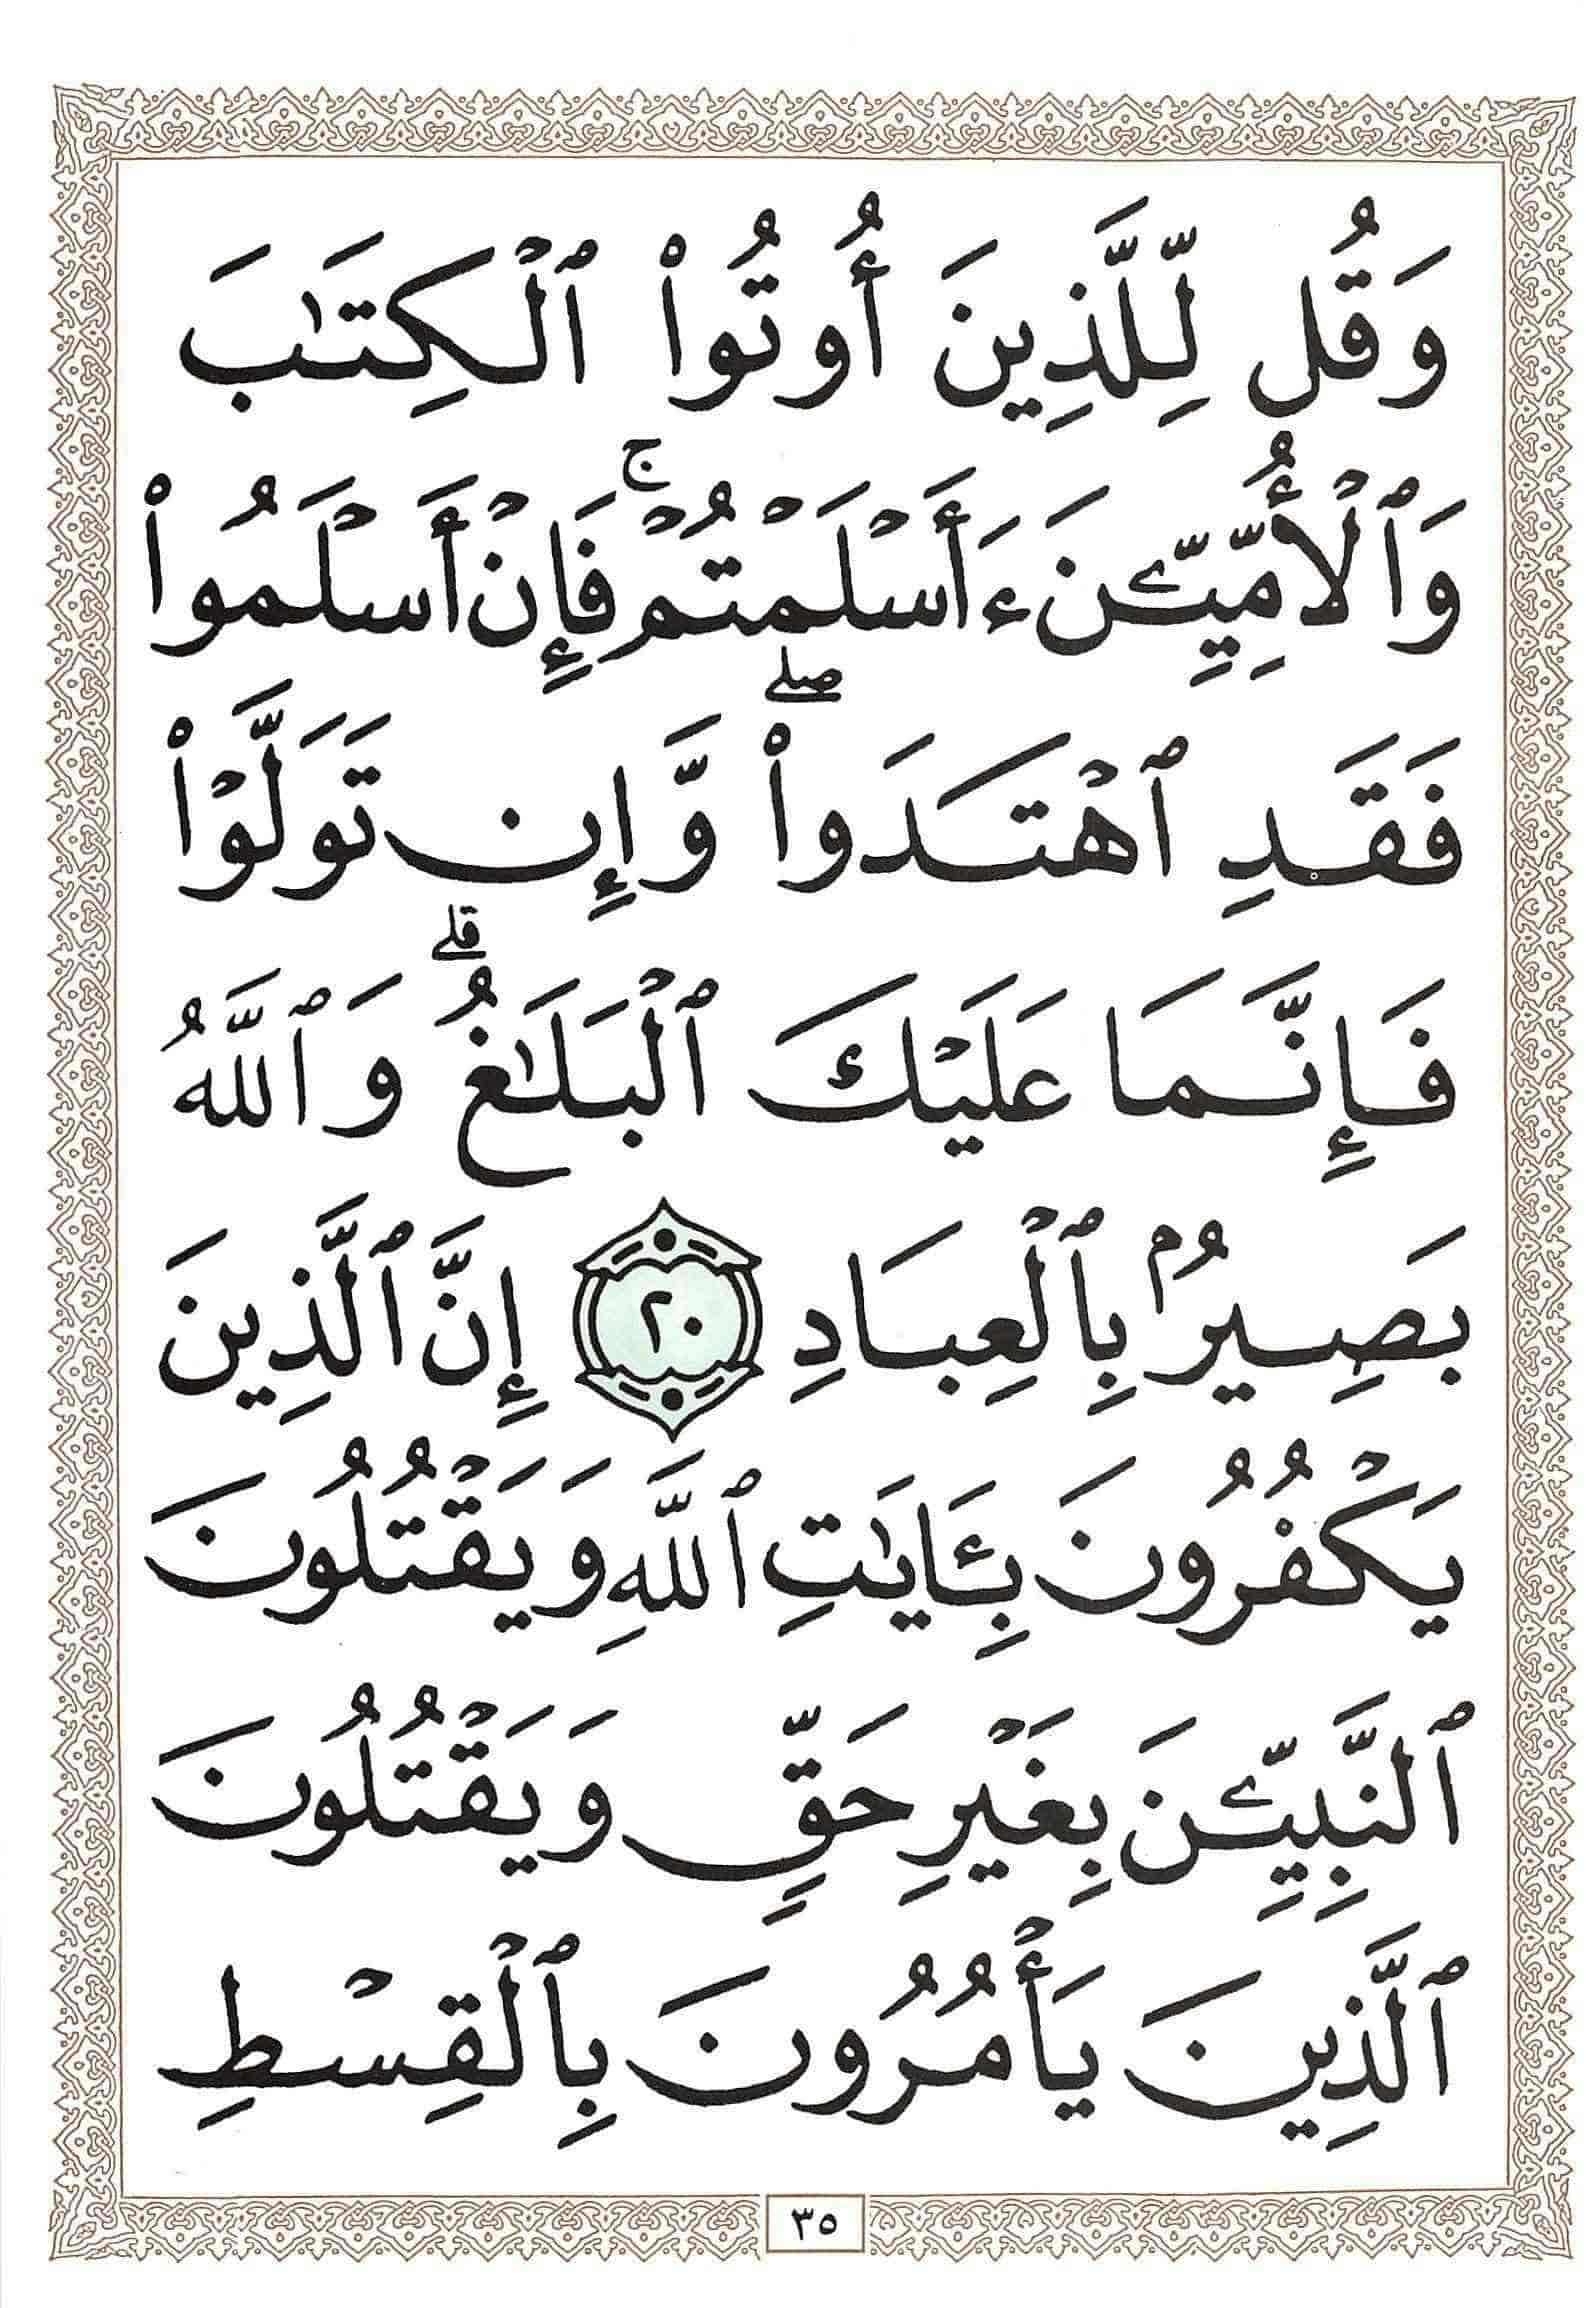 وَقُل لِّلَّذِينَ أُوتُوا۟ ٱلْكِتَـٰبَ
وَٱلْأُمِّيِّـۧنَ ءَأَسْلَمْتُمْ ۚ فَإِنْ أَسْلَمُوا۟
فَقَدِ ٱهْتَدَوا۟ ۖ وَّإِن تَوَلَّوْا۟
فَإِنَّمَا عَلَيْكَ ٱلْبَلَـٰغُ ۗ وَٱللَّهُ
بَصِيرٌۢ بِٱلْعِبَادِ ٢٠ إِنَّ ٱلَّذِينَ
يَكْفُرُونَ بِـَٔايَـٰتِ ٱللَّهِ وَيَقْتُلُونَ
ٱلنَّبِيِّـۧنَ بِغَيْرِ حَقٍّ وَيَقْتُلُونَ
ٱلَّذِينَ يَأْمُرُونَ بِٱلْقِسْطِ
٣٥